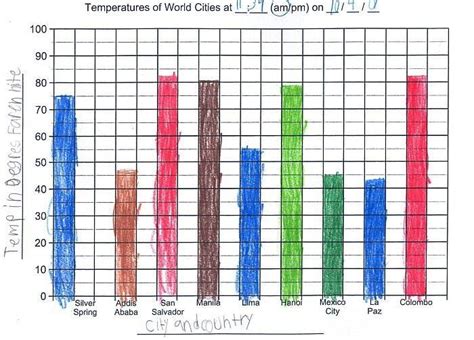 Temperatures of World Cities at 11:39 (am/pm) on
100
90
80
70
60
50
40
30
20
10
0
Temp in Degree Farenhite
Silver Spring
Addis Ababa
San Salvador
Manila
Lima
Hanoi
Mexico City
La Paz
Colombo
City and country